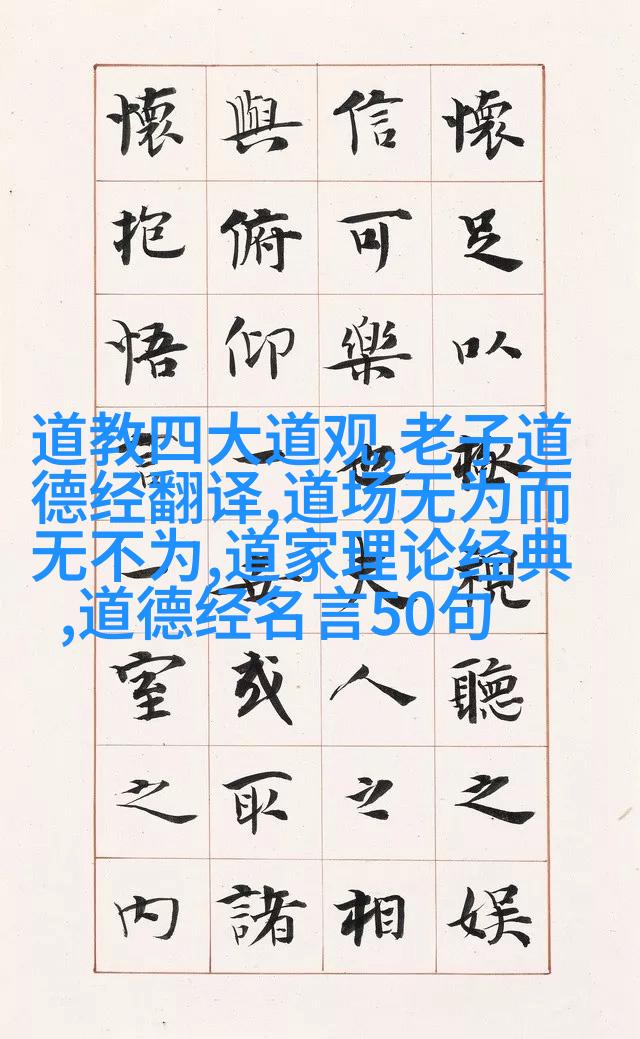 懷足以極視聽之娛
信可樂也夫人之相
與俯仰一世或取諸
懷抱悟言一室之內
道教四大道观,老子道
德经翻译,道场无为而
无不为,道家理论经典
,道德经名言50句